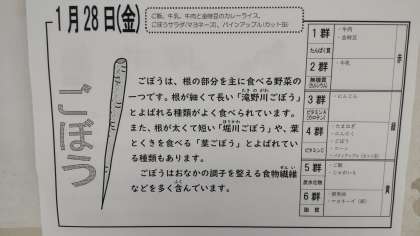 1月28日(金)
ご飯、牛乳、牛肉と金時豆のカレーライス、
ごぼうサラダ(マヨネーズ)、パインアップル(カット缶)
ごぼう
ごぼうは、根の部分を主に食べる野菜の
一つです。根が細くて長い「滝野川ごぼう」
たきのがわ
とよばれる種類がよく食べられています。
また、根が太くて短い「堀川ごぼう」や、葉
ほりかわ
とくきを食べる「葉ごぼう」とよばれてい
る種類もあります。
ごぼうはおなかの調子を整える食物繊維
せんい
などを多く含んでいます。
ふく
1群
たんぱく質
・牛肉
・金時豆
2群
無機質
カルシウム
・牛乳
3群
ビタミンA
(カロテン)
・にんじん
4群
ビタミンC
・たまねぎ
・にんにく
・ごぼう
・コーン
・パインアップル(カット缶)
5群
炭水化物
・ご飯
・じゃがいも
6群
脂質
・マヨネーズ(卵)